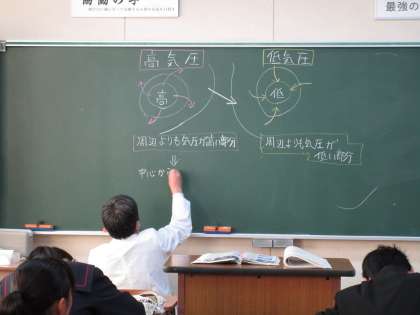 最強の
高気圧
低気圧
高
低
周辺よりも気圧が高い部分
周辺よりも気圧が
低い部分
⇓
中心か